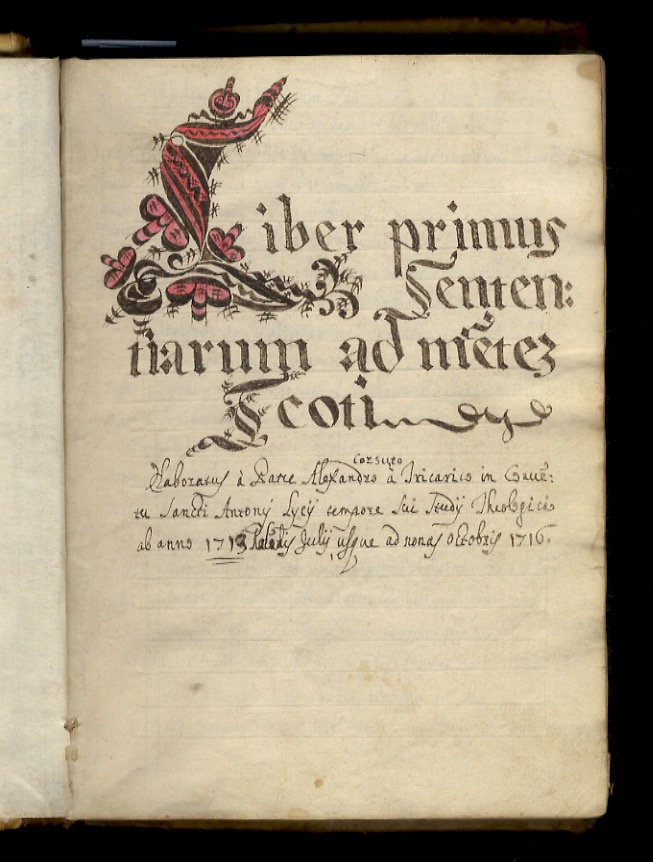 Liber primus
Senten:
tiarum ad mẽtez
Scoti
Corsuto
Elaboratus à Patre Alexandro à Tricarico in Convẽ:
tu Sancti Antonij Lycij tempore sui studij Theologici
ab anno 1713 Kalendis Julij usque ad nonas octobris 1716.